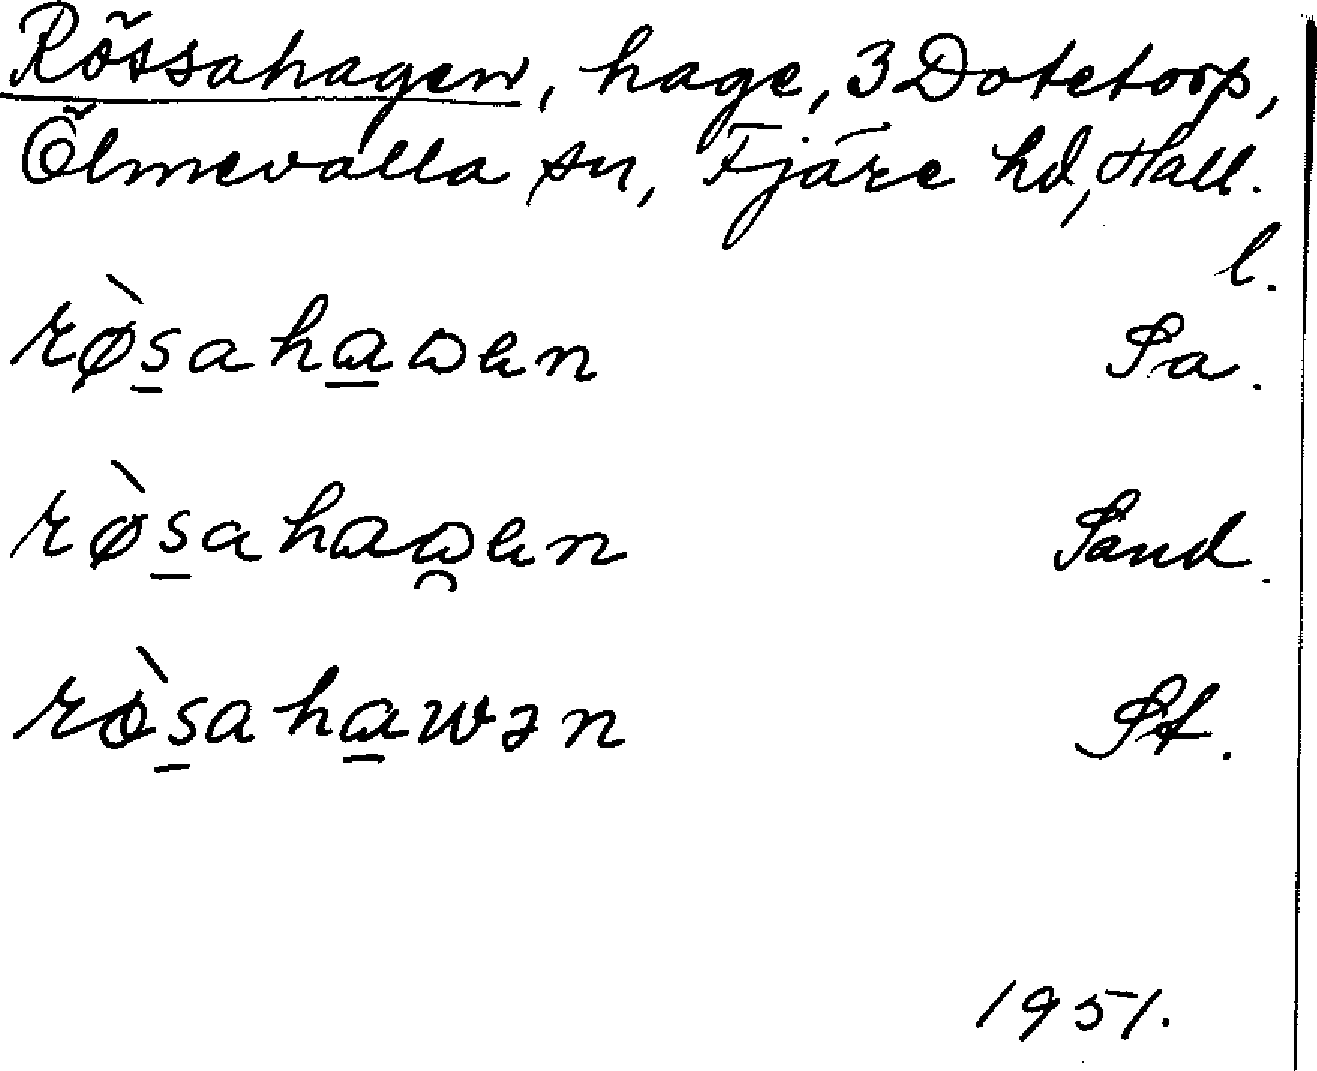 Rössahagen, hage, 3 Dotetorp,
Ölmevalla sn, Fjäre hd, Hall.
l.
rø̀s̲aha̲ωen Sa.
rø̀s̲ahaω̯en Sand.
rò̀s̲aha̲wən St.
1951.